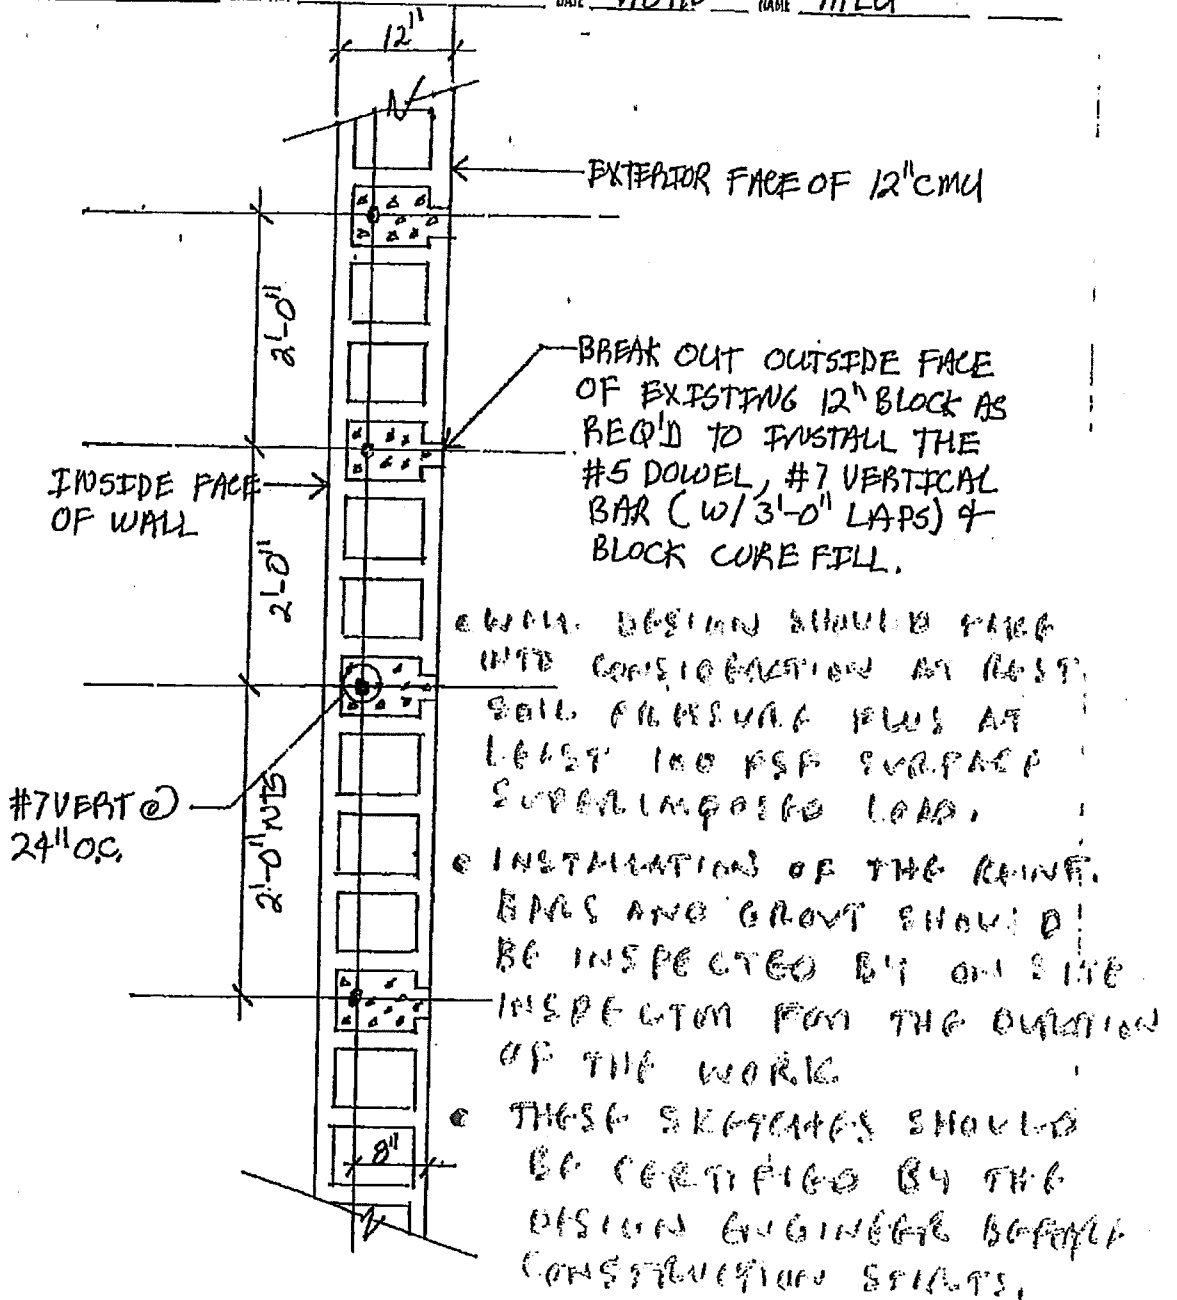 DATE NOTED NAME
12"
EXTERIOR FACE OF 12" CMU
2'-0"
BREAK OUT OUTSIDE FACE
OF EXISTING 12" BLOCK AS
REQ'D TO INSTALL THE
#5 DOWEL, #7 VERTICAL
BAR (W/ 3'-0" LAPS) &
BLOCK CORE FILL.
INSIDE FACE
OF WALL
2'-0"
• WALL DESIGN SHOULD TAKE
INTO CONSIDERATION AT REST
SOIL PRESSURE PLUS AT
LEAST 100 PSF SURFACE
SUPERIMPOSED LOAD.
#7 VERT @
24" O.C.
2'-0" NTS
• INSTALLATION OF THE REINF.
BARS AND GROUT SHOULD
BE INSPECTED BY ON SITE
INSPECTOR FOR THE DURATION
OF THE WORK
• THESE SKETCHES SHOULD
BE CERTIFIED BY THE
DESIGN ENGINEER BEFORE
CONSTRUCTION STARTS.
8"